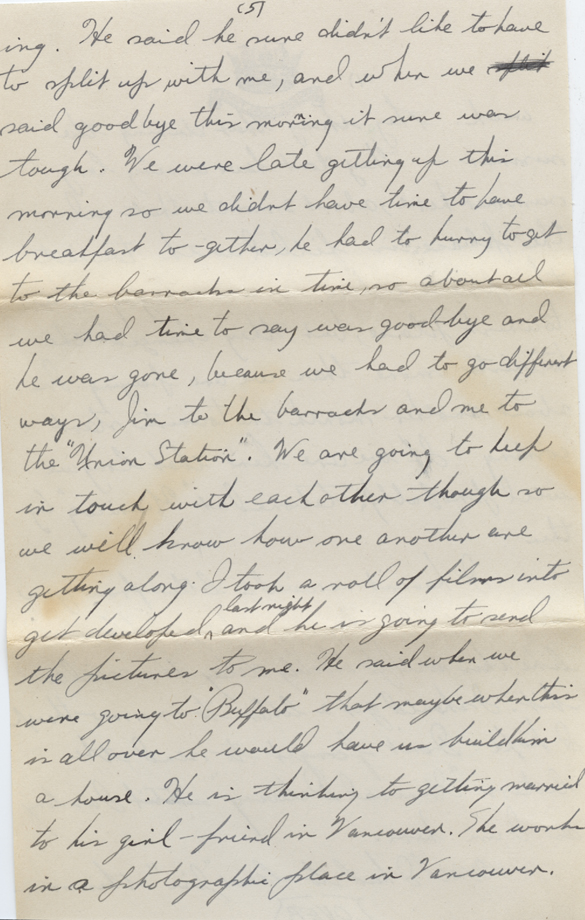 (5)
ing. He said he sure didn't like to have
to split up with me, and when we split
said goodbye this morning it sure was
tough. We were late getting up this
morning so we didnt have time to have
breakfast to-gether, he had to hurry to get
to the barracks in time, so about all
we had time to say was good-bye and
he was gone, because we had to go different
ways, Jim to the barracks and me to
the "Union Station". We are going to keep
in touch with each other though so
we will know how one another are
getting along. I took a roll of films into
last night
get developed, and he is going to send
the pictures to me. He said when we
were going to "Buffalo" that maybe when this
is all over he would have us build him
a house. He is thinking to getting married
to his girl-friend in Vancouver. She works
in a photographic place in Vancouver.